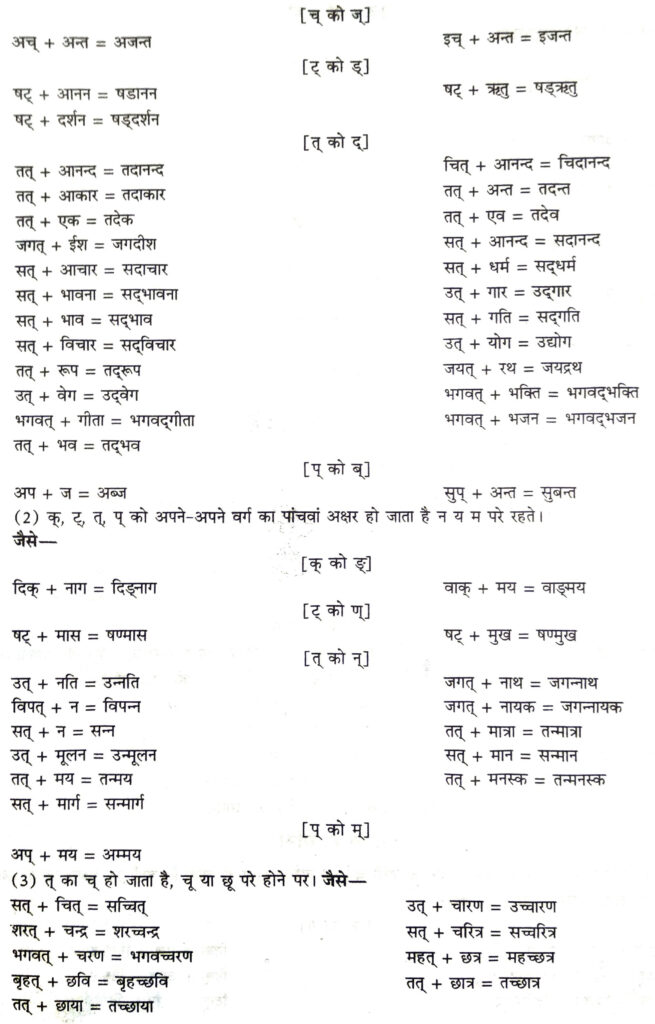 [च् को ज्]
अच् + अन्त = अजन्त	इच् + अन्त = इजन्त
[ट् को ड्]
षट् + आनन = षडानन	षट् + ऋतु = षड्ऋतु
षट् + दर्शन = षड्दर्शन
[त् को द्]
तत् + आनन्द = तदानन्द	चित् + आनन्द = चिदानन्द
तत् + आकार = तदाकार	तत् + अन्त = तदन्त
तत् + एक = तदेक	तत् + एव = तदेव
जगत् + ईश = जगदीश	सत् + आनन्द = सदानन्द
सत् + आचार = सदाचार	सत् + धर्म = सद्धर्म
सत् + भावना = सद्भावना	उत् + गार = उद्गार
सत् + भाव = सद्भाव	सत् + गति = सद्गति
सत् + विचार = सद्विचार	उत् + योग = उद्योग
तत् + रूप = तद्रूप	जयत् + रथ = जयद्रथ
उत् + वेग = उद्वेग	भगवत् + भक्ति = भगवद्भक्ति
भगवत् + गीता = भगवद्गीता	भगवत् + भजन = भगवद्भजन
तत् + भव = तद्भव
[प् को ब्]
अप + ज = अब्ज	सुप् + अन्त = सुबन्त
(2) क्, ट्, त्, प् को अपने-अपने वर्ग का पांचवां अक्षर हो जाता है न य म परे रहते।
जैसे—
[क् को ङ्]
दिक् + नाग = दिङ्नाग	वाक् + मय = वाङ्मय
[ट् को ण्]
षट् + मास = षण्मास	षट् + मुख = षण्मुख
[त् को न्]
उत् + नति = उन्नति	जगत् + नाथ = जगन्नाथ
विपत् + न = विपन्न	जगत् + नायक = जगन्नायक
सत् + न = सन्न	तत् + मात्रा = तन्मात्रा
उत् + मूलन = उन्मूलन	सत् + मान = सन्मान
तत् + मय = तन्मय	तत् + मनस्क = तन्मनस्क
सत् + मार्ग = सन्मार्ग
[प् को म्]
अप् + मय = अम्मय
(3) त् का च् हो जाता है, चू या छू परे होने पर। जैसे—
सत् + चित् = सच्चित्	उत् + चारण = उच्चारण
शरत् + चन्द्र = शरच्चन्द्र	सत् + चरित्र = सच्चरित्र
भगवत् + चरण = भगवच्चरण	महत् + छत्र = महच्छत्र
बृहत् + छवि = बृहच्छवि	तत् + छात्र = तच्छात्र
तत् + छाया = तच्छाया